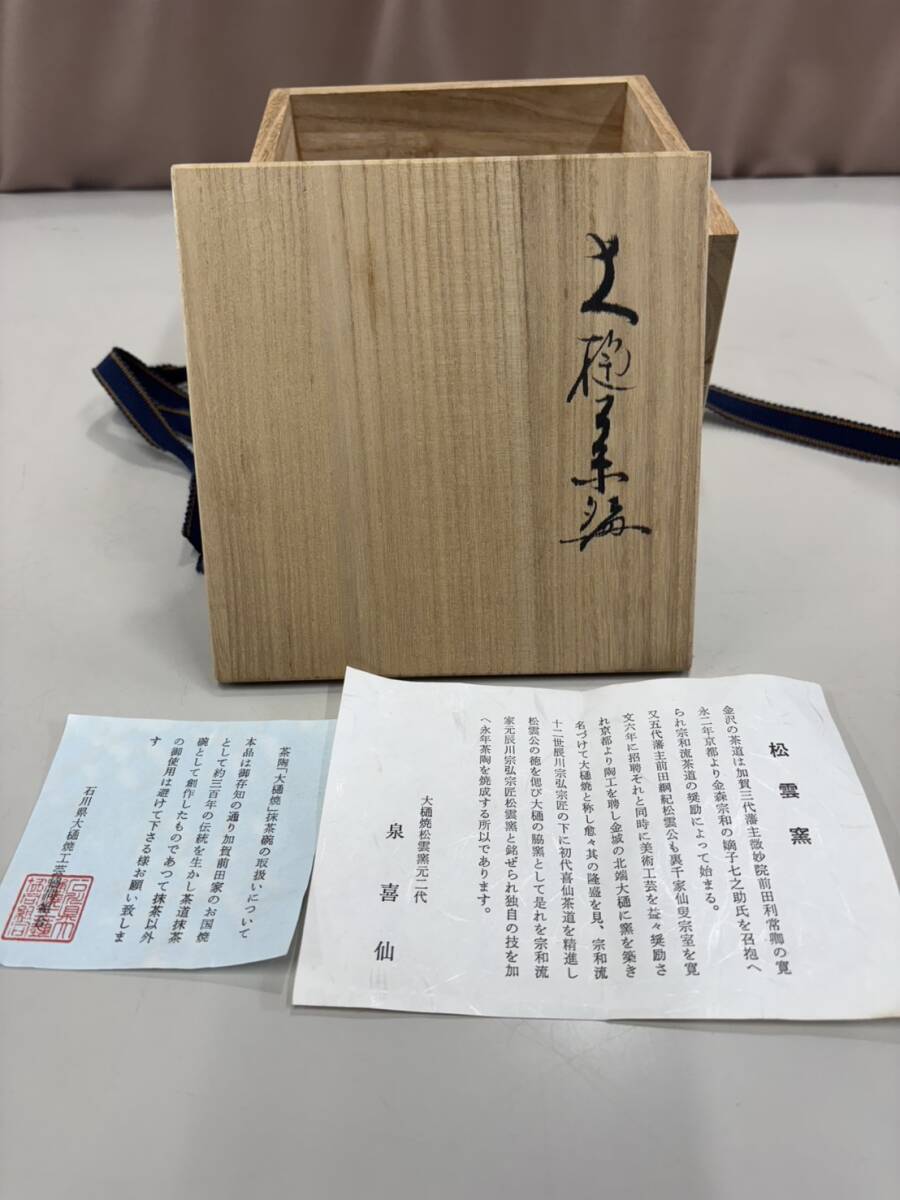 大樋茶碗
松雲窯
金沢の茶道は加賀三代藩主微妙院前田利常卿の寛
永二年京都より金森宗和の嫡子七之助氏を召抱へ
られ宗和流茶道の奨励によって始まる。
又五代藩主前田綱紀松雲公も裏千家仙叟宗室を寛
文六年に招聘それと同時に美術工芸を益々奨励さ
れ京都より陶工を聘し金城の北端大樋に窯を築き
名づけて大樋焼と称し愈々其の隆盛を見、宗和流
十二世辰川宗弘宗匠の下に初代喜仙茶道を精進し
松雲公の徳を偲び大樋の脇窯として是れを宗和流
家元辰川宗弘宗匠松雲窯と銘ぜられ独自の技を加
へ永年茶陶を焼成する所以であります。
大樋焼松雲窯元二代
泉喜仙
茶陶「大樋焼」抹茶碗の取扱いについて
本品は御存知の通り加賀前田家のお国焼
として約三百年の伝統を生かし茶道抹茶
碗として創作したものであつて抹茶以外
の御使用は避けて下さる様お願い致しま
す
石川県大樋焼工芸